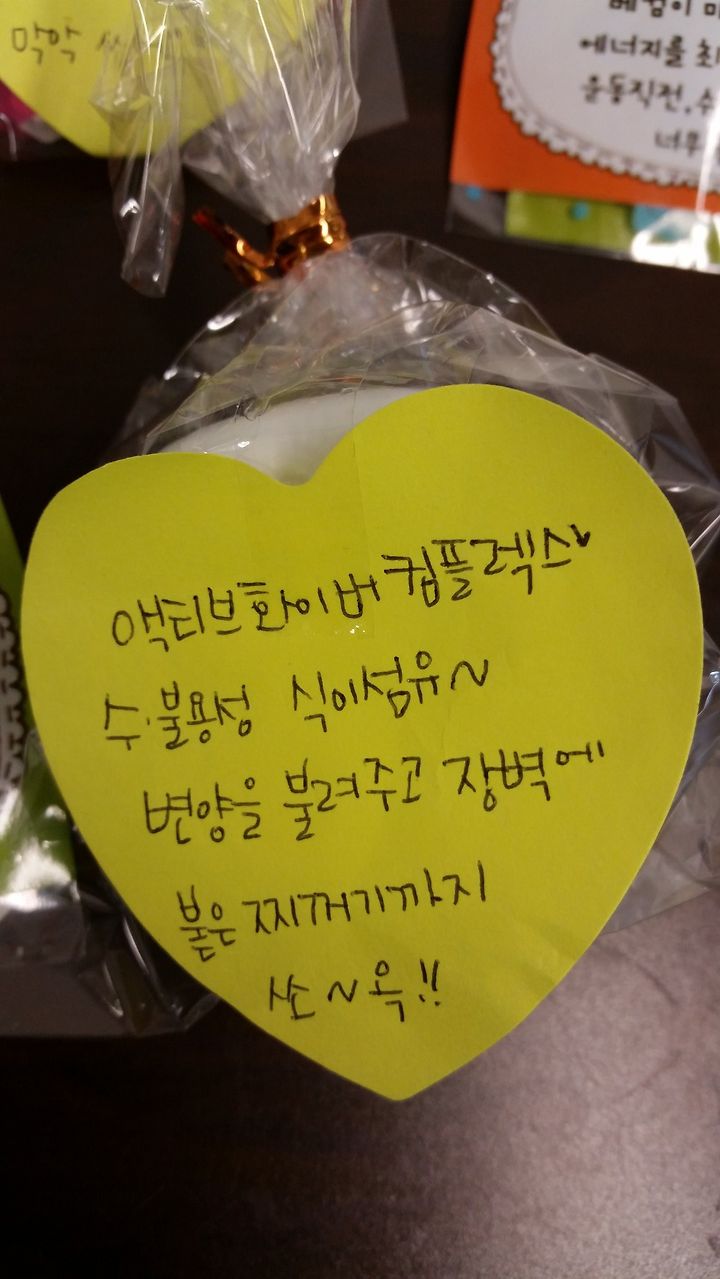 막약
베럼이
에너지를 최
운동직전, 수
너무
액티브화이버컴플렉스
수·불용성 식이섬유~
변양을 불려주고 장벽에
붙은 찌꺼기까지
쏘~옥!!